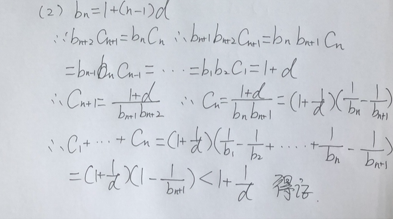 (2) bₙ=1+(n-1)d
∵bₙ₊₂Cₙ₊₁=bₙCₙ ∴bₙ₊₁bₙ₊₂Cₙ₊₁=bₙbₙ₊₁Cₙ
=bₙ₋₁bₙCₙ₋₁=⋯=b₁b₂C₁=1+d
∴Cₙ₊₁=(1+d)/(bₙ₊₁bₙ₊₂) ∴Cₙ=(1+d)/(bₙbₙ₊₁)=(1+1/d)(1/bₙ-1/bₙ₊₁)
∴C₁+⋯+Cₙ=(1+1/d)(1/b₁-1/b₂+⋯+1/bₙ-1/bₙ₊₁)
=(1+1/d)(1-1/bₙ₊₁)<1+1/d 得证.